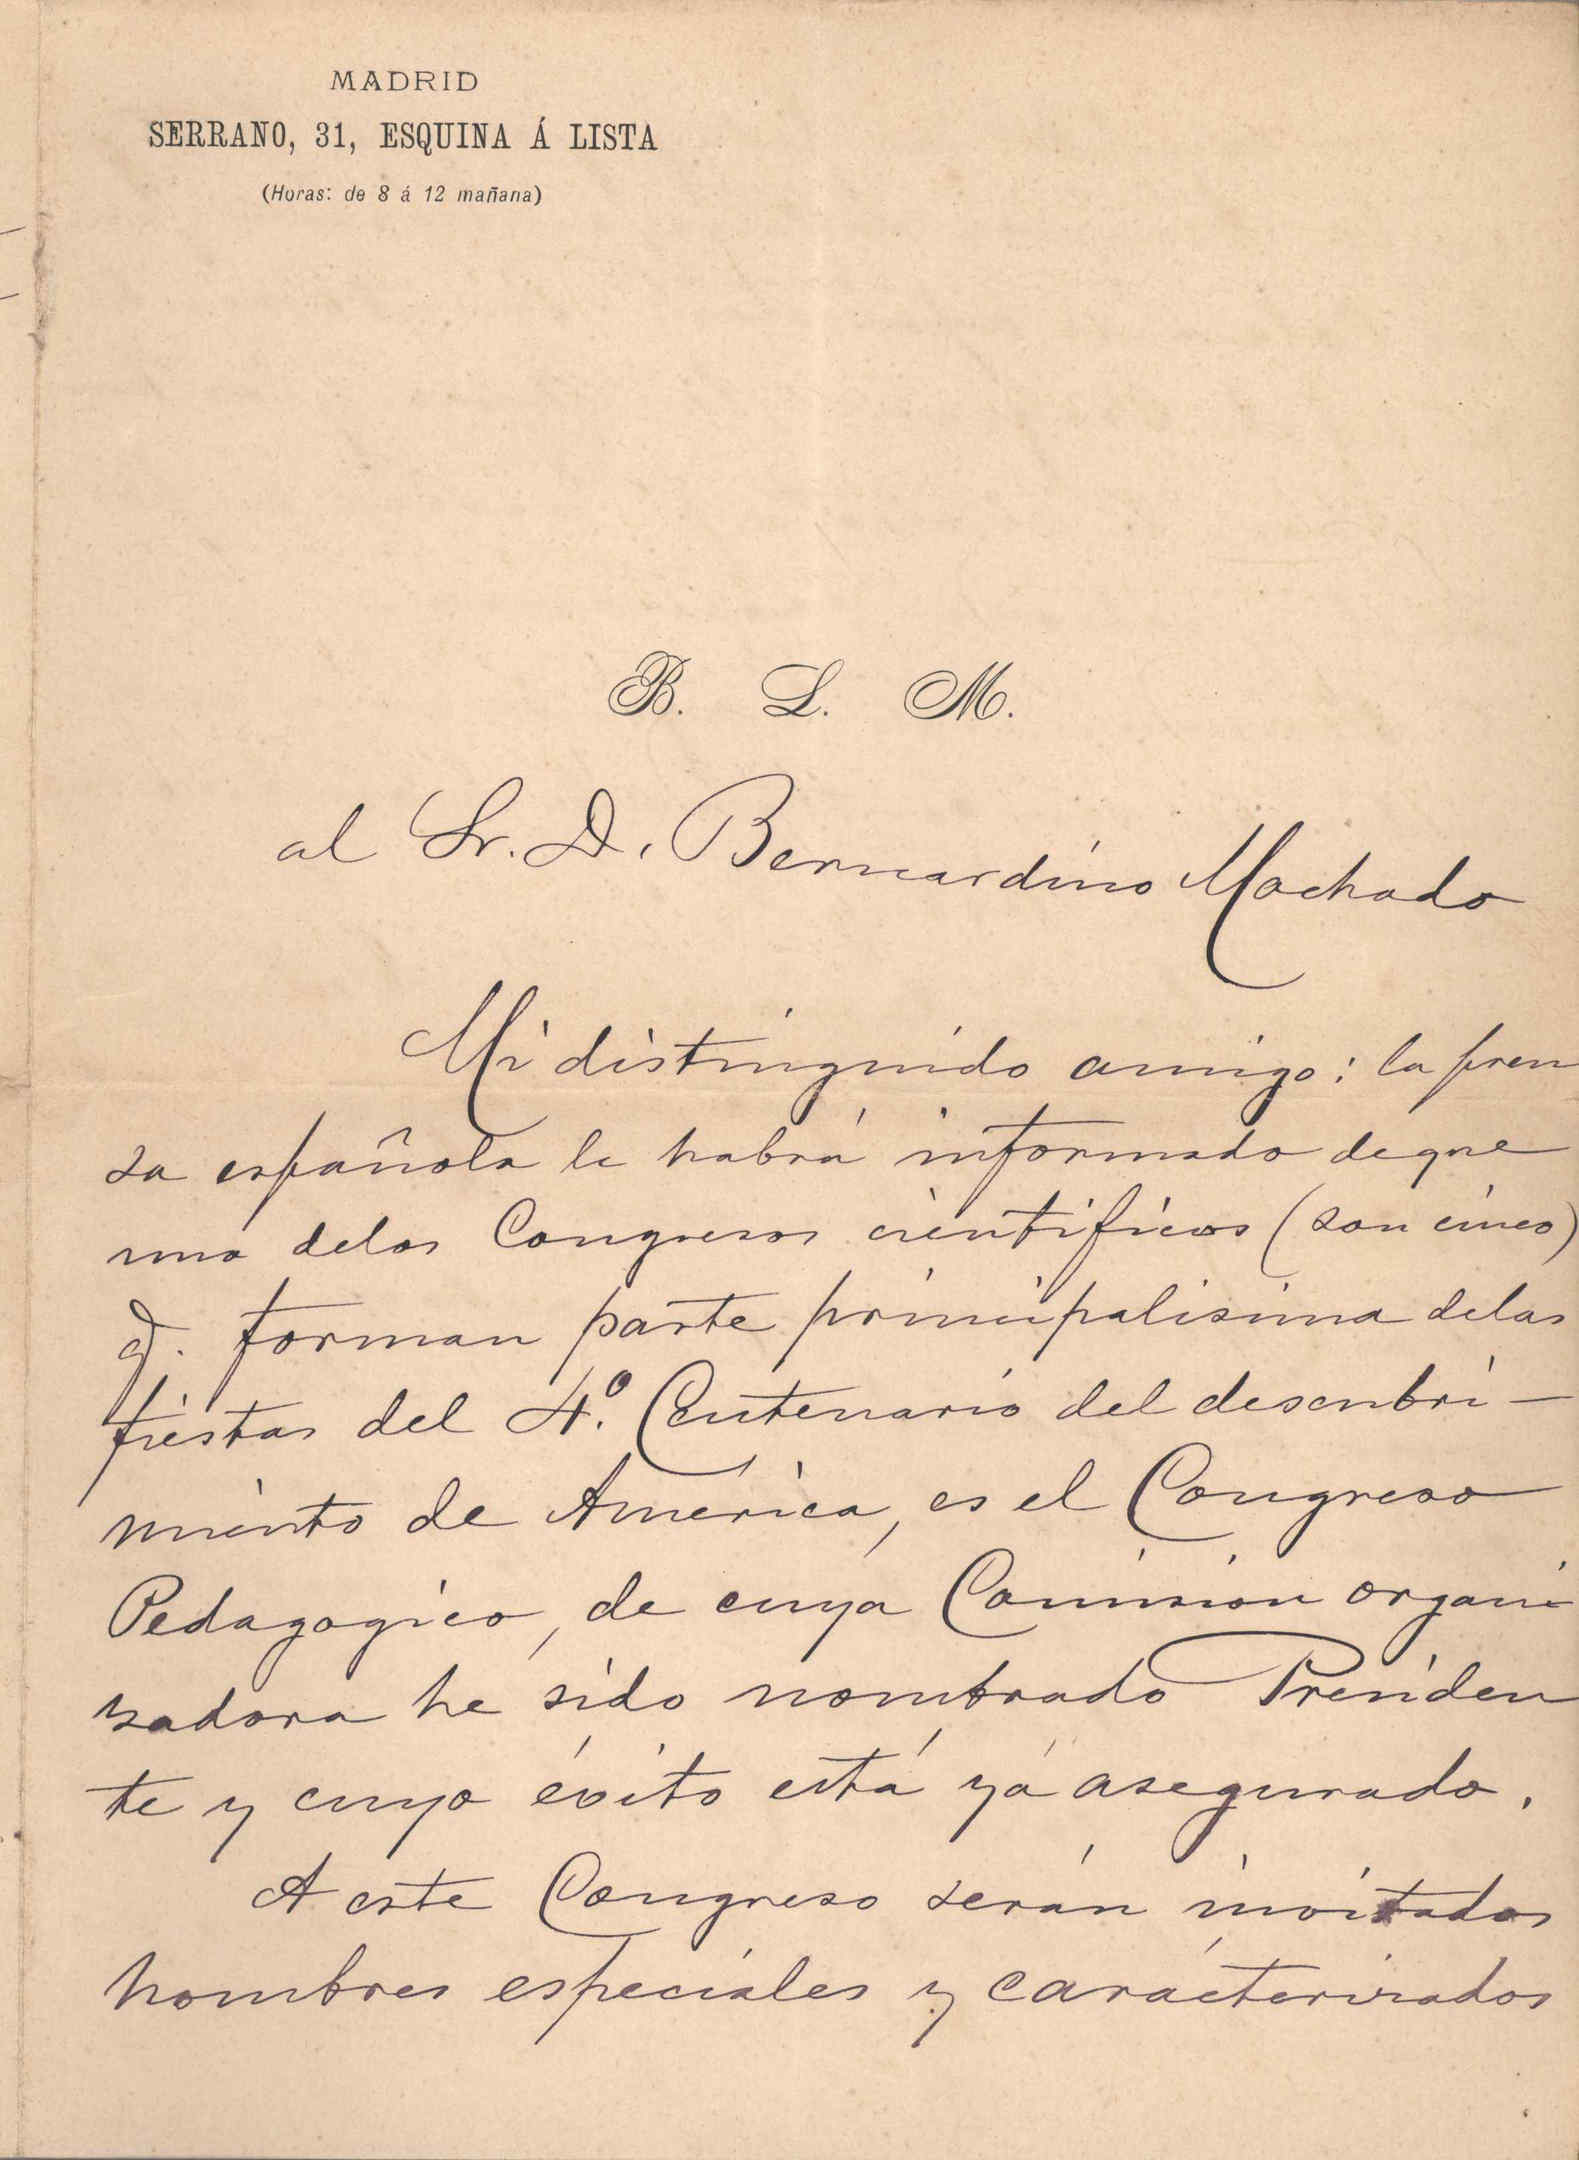 MADRID
SERRANO, 31, ESQUINA Á LISTA
(Horas: de 8 á 12 mañana)
B. L. M.
al Sr. D. Bernardino Machado
Mi distinguido amigo: la pren
sa española le habrá informado de que
uno delos Congresos cientificos (son cinco)
q. forman parte principalisima delas
fiestas del 4.º Centenario del descubri-
miento de América, es el Congreso
Pedagogico, de cuya Comisión organi
zadora he sido nombrado Presiden
te y cuyo éxito está yá asegurado.
A este Congreso serán invitados
hombres especiales y carácterizados